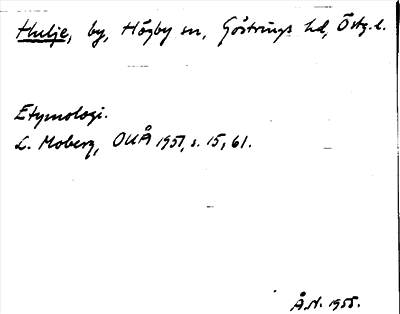 Hulje, by, Högby sn, Göstrings hd, Östg. l.
Etymologi.
L. Moberg, OUÅ 1951, s. 15, 61.
Å.N. 1955.